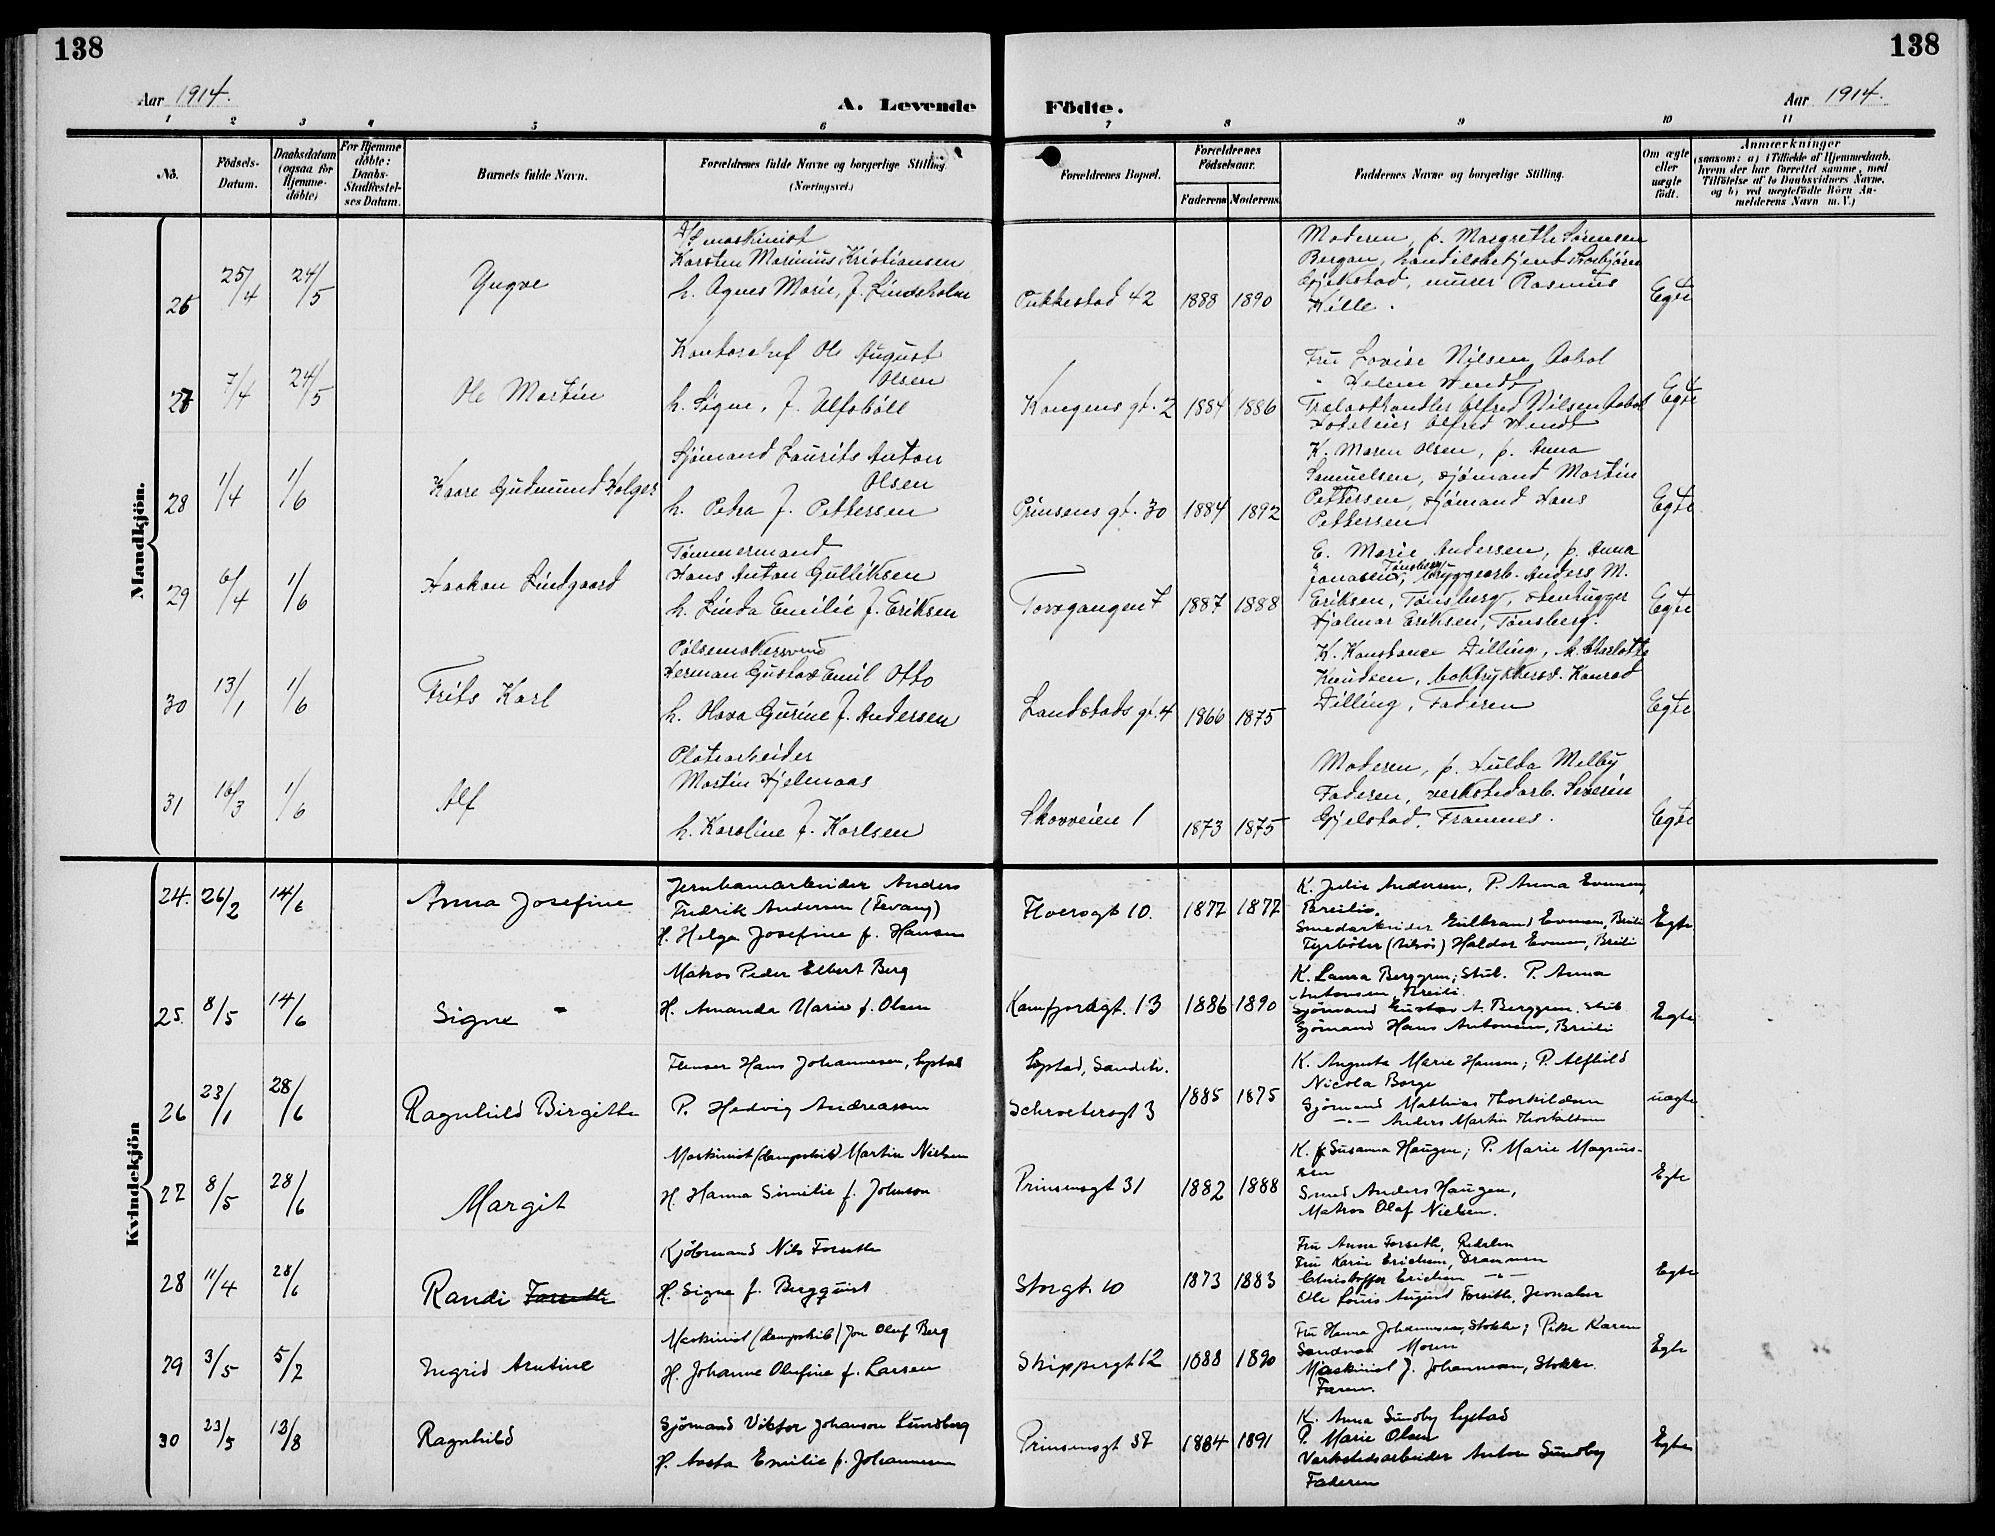 138
138
Aar 1914.
A. Levende
Födte.
Aar 1914.
1 2 3 4 5 6 7 8 9 10 11
No.
Födsels-
Datum.
Daabsdatum
(ogsaa for
Hjemme-
döbte)
For Hjemme
döbte:
Daabs-
Stadfæstel-
ses Datum.
Barnets fulde Navn.
Forældrenes fulde Navne og borgerlige Stilling.
(Næringsvei.)
Forældrenes Bopæl.
Forældrenes
Födselsaar.
Faderens
Moderens
Faddernes Navne og borgerlige Stilling.
Om ægte
eller
uægte
födt.
Anmærkninger
(saasom: a) i Tilfælde af Hjemmedaab,
hvem der har forrettet samme, med
Tilföielse af to Daabsvidners Navne,
og b) ved uægtefödte Börn An-
melderens Navn m. V.)
Mandkjön.
26 25/4 24/5 Yngve
maskinist
Karsten Marinius Kristiansen
h. Agnes Marie, f. Lindholm
Pukkestad 42 1888 1890
Moderen, p. Margrethe Sörensen
Bergan, handelsbetjent
Gjekstad, murer Rasmus
Kille.
Egte
27 7/4 24/5 Ole Martin
Kontorchef Ole August
Olsen
h. Signe, f.
Kongens gt. 2 1884 1886
Fru Lovise Nilsen Aabol
Trælasthandler Alfred Nilsen Aabol
Alfred Wendt
Egte
28 1/4 1/6 Kaare Gudmund Holger
Sjömand Laurits Anton
Olsen
h. Petra f. Pettersen
Prinsens gt. 30 1884 1892
K. Maren Olsen, p. Anna
Samuelsen, sjömand Martin
Pettersen, sjömand Hans
Pettersen
Egte
29 6/4 1/6 Haakon Lindgaard
Tömmermand
Hans Anton Gulliksen
h. Linda Emilie f. Eriksen
Torvgangen 7 1887 1888
E. Marie Andersen, p. Anna
Jonassen, Tönsberg, bryggearb. Anders M.
Eriksen, Tönsberg, stenhugger
Hjalmar Eriksen, Tönsberg.
Egte
30 13/1 1/6 Frits Karl
Pölsemakersvend
Herman Gustav Emil Otto
h. Olava Gurine f. Andersen
Landstads gt. 4 1866 1875
K. Konstance Dilling, K. Charlotte
Knudsen, boktrykkersv. Konrad
Dilling, Faderen
Egte
31 16/3 1/6 Alf
Platearbeider
Martin Hjelmaas
h. Karoline f. Karlsen
Skovveien 1 1873 1875
Moderen, p. Hulda Melby
Faderen, verkstedarb. Severin
Gjelstad, Framnes.
Egte
Kvindekjön
24. 26/2 14/6 Anna Josefine
Jernbanearbeider Anders
Fredrik Andersen (Fevang)
H. Helga Josefine f. Hansen
Floersgt 10. 1877 1877
K. Julie Andersen, P. Anna Evensen,
Breili.
Smedarbeider Gulbrand Evensen, Breili
Fyrböter Haldor Evensen, Breili
Egte
25. 8/5 14/6 Signe
Matros Peder Elbert Berg
H. Amanda Marie f. Olsen
Kamfjordgt. 13 1886 1890
K. Laura Berggren, Stub. P. Anna
Antonsen, Breili.
Sjömand Gustav A. Berggren, Stub
Sjömand Hans Antonsen, Breili
Egte
26 23/1 28/6 Ragnhild Birgitte
Flenser Hans Johannesen, Lystad
P. Hedvig Andreassen
Lystad, Sandeh.
Schrœtersgt 3 1885 1875
K. Augusta Marie Hansen; P. Alfhild
Nicola Borge
Sjömand Mathias Thorkildsen
-"- Anders Martin Thorkildsen
uægte
27 8/5 28/6 Margit
Maskinist (dampskib) Martin Nielsen
H. Hanna Similie f. Johnson
Prinsensgt 31 1882 1888
K. Susanna Haugen; P. Marie Magnus-
sen
Smed Anders Haugen,
Matros Olaf Nielsen.
Egte
28 11/4 28/6 Randi Forseth
Kjöbmand Nils Forseth
H. Signe f. Bergquist
Storgt. 10 1873 1883
Fru Anne Forseth, Redalen
Fru Karin Erichsen, Drammen
Christoffer Erichsen -"-
Ole Louis August Forseth,
Egte
29 3/5 5/7 Ingrid Arntine
Maskinist (dampskib) Jon Oluf Berg
H. Johanne Olufine f. Larsen
Skippergt 12 1888 1890
Fru Hanna Johannesen, Stokke; Pike Karen
Sandnes Moren
Maskinist J. Johannesen, Stokke.
Faren.
Egte
30 23/5 13/8 Ragnhild
Sjömand Viktor Johanson Lundberg
H. Aasta Emilie f. Johannesen
Prinsensgt 37 1884 1891
K. Anna Sundby Lystad
P. Marie Olsen
Verkstedsarbeider Anton Sundby
Faderen
Egte